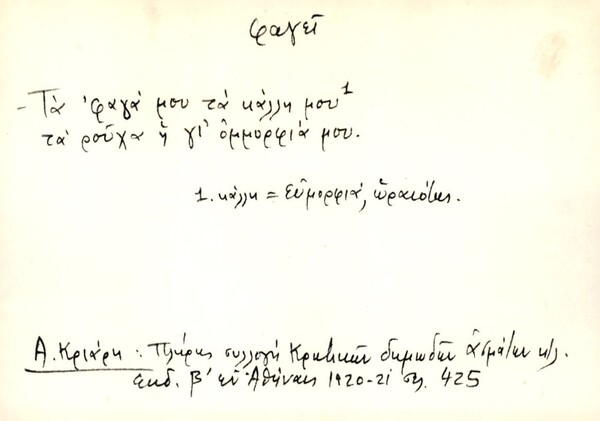 φαγεῖ
- Τὰ 'φαγά μου τὰ κάλλη μου¹
τὰ ροῦχα ἢ γι' ὀμμορφιά μου.
1. κάλλη = εὐμορφιά, ὡραιότης.
Α. Κριάρη : Πλήρης συλλογή Κρητικῶν δημωδῶν ἀσμάτων κτλ.
ἐκδ. β' ἐν Ἀθήναις 1920-21 σελ. 425